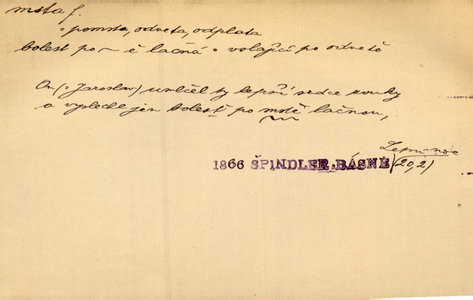 msta f.
= pomsta, odveta, odplata
bolest po ~ ě lačná = volající po odvetě
On (= Jaroslav) umlčel ty lepší srdce zvuky
a vylechl jen bolestí po mstě lačnou,
1866 ŠPINDLER, BÁSNĚ (20,2)